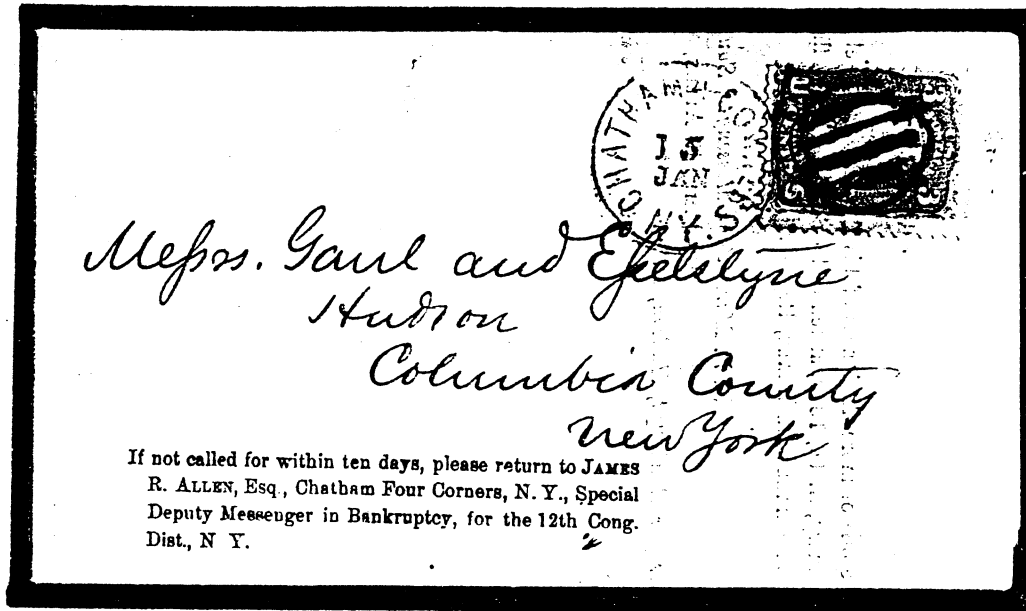 CHATHAM 4 CORS N.Y.
15
JAN
Messrs. Gaul and Esselstyne
Hudson
Columbia County
New York
If not called for within ten days, please return to JAMES
R. ALLEN, Esq., Chatham Four Corners, N. Y., Special
Deputy Messenger in Bankruptcy, for the 12th Cong.
Dist., N Y.